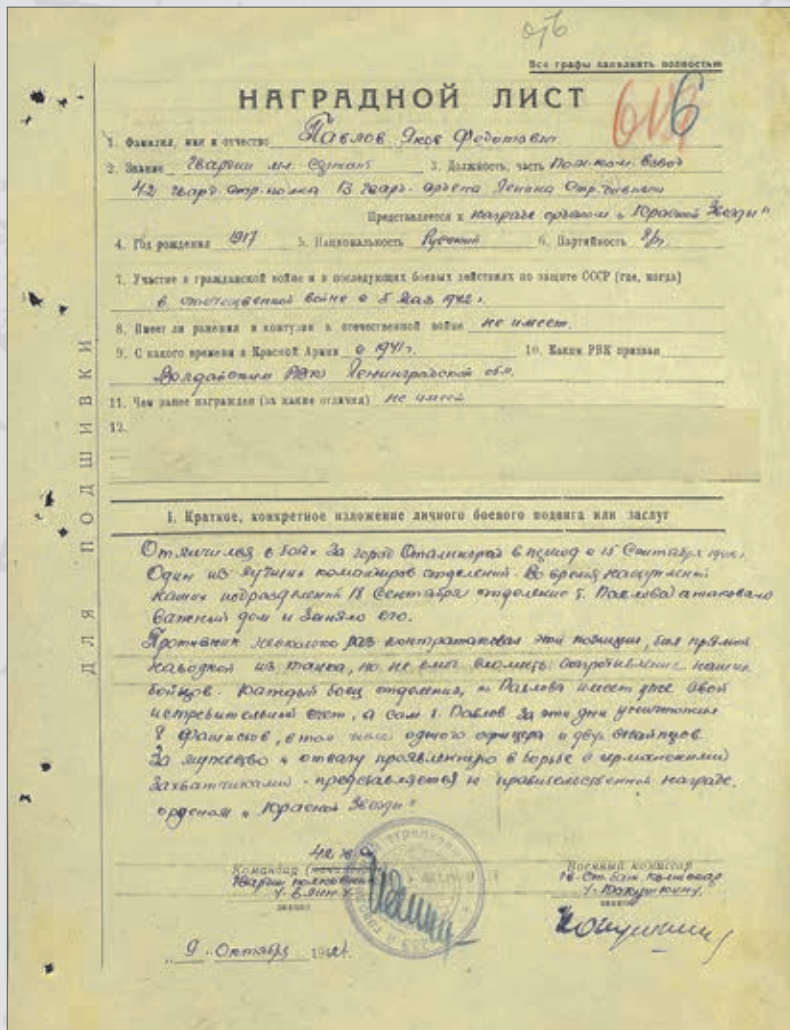 Все графы заполнять полностью
НАГРАДНОЙ ЛИСТ
6
1. Фамилия, имя и отчество Павлов Яков Федотович
2. Звание Гвардии мл. сержант 3. Должность, часть Пом. ком. взвод
42 гвард. стр. полка 13 гвард. ордена Ленина стр. дивизии
Представляется к награде орденом „Красной Звезды"
4. Год рождения 1917 5. Национальность Русский 6. Партийность б/п
7. Участие в гражданской войне и в последующих боевых действиях по защите СССР (где, когда)
в отечественной войне с 5 мая 1942 г.
8. Имеет ли ранения и контузии в отечественной войне не имеет.
9. С какого времени в Красной Армии с 1941 г. 10. Каким РВК призван
Валдайским РВК Ленинградской обл.
11. Чем ранее награжден (за какие отличия) не имеет
12.
ДЛЯ ПОДШИВКИ
I. Краткое, конкретное изложение личного боевого подвига или заслуг
Отличился в боях за город Сталинград в период с 15 Сентября
Один из лучших командиров отделений. Во время наступлений
наших подразделений 18 Сентября отделение т. Павлова атаковало
важный дом и заняло его.
Противник несколько раз контратаковал эти позиции, бил прямой
наводкой из танка, но не смог сломить сопротивление наших
бойцов. Каждый боец отделения, т. Павлова имеет уже свой
истребительный счет, а сам т. Павлов за эти дни уничтожил
8 фашистов, в том числе одного офицера и двух снайперов.
За мужество и отвагу проявленную в борьбе с германскими
захватчиками - представляется к правительственной награде,
орденом „Красной Звезды"
42
Командир Военный комиссар
Гвардии полковник Ст. бат. комиссар
/Елин/ /Кокушкину/
звание звание
9 Октября 1942 г.